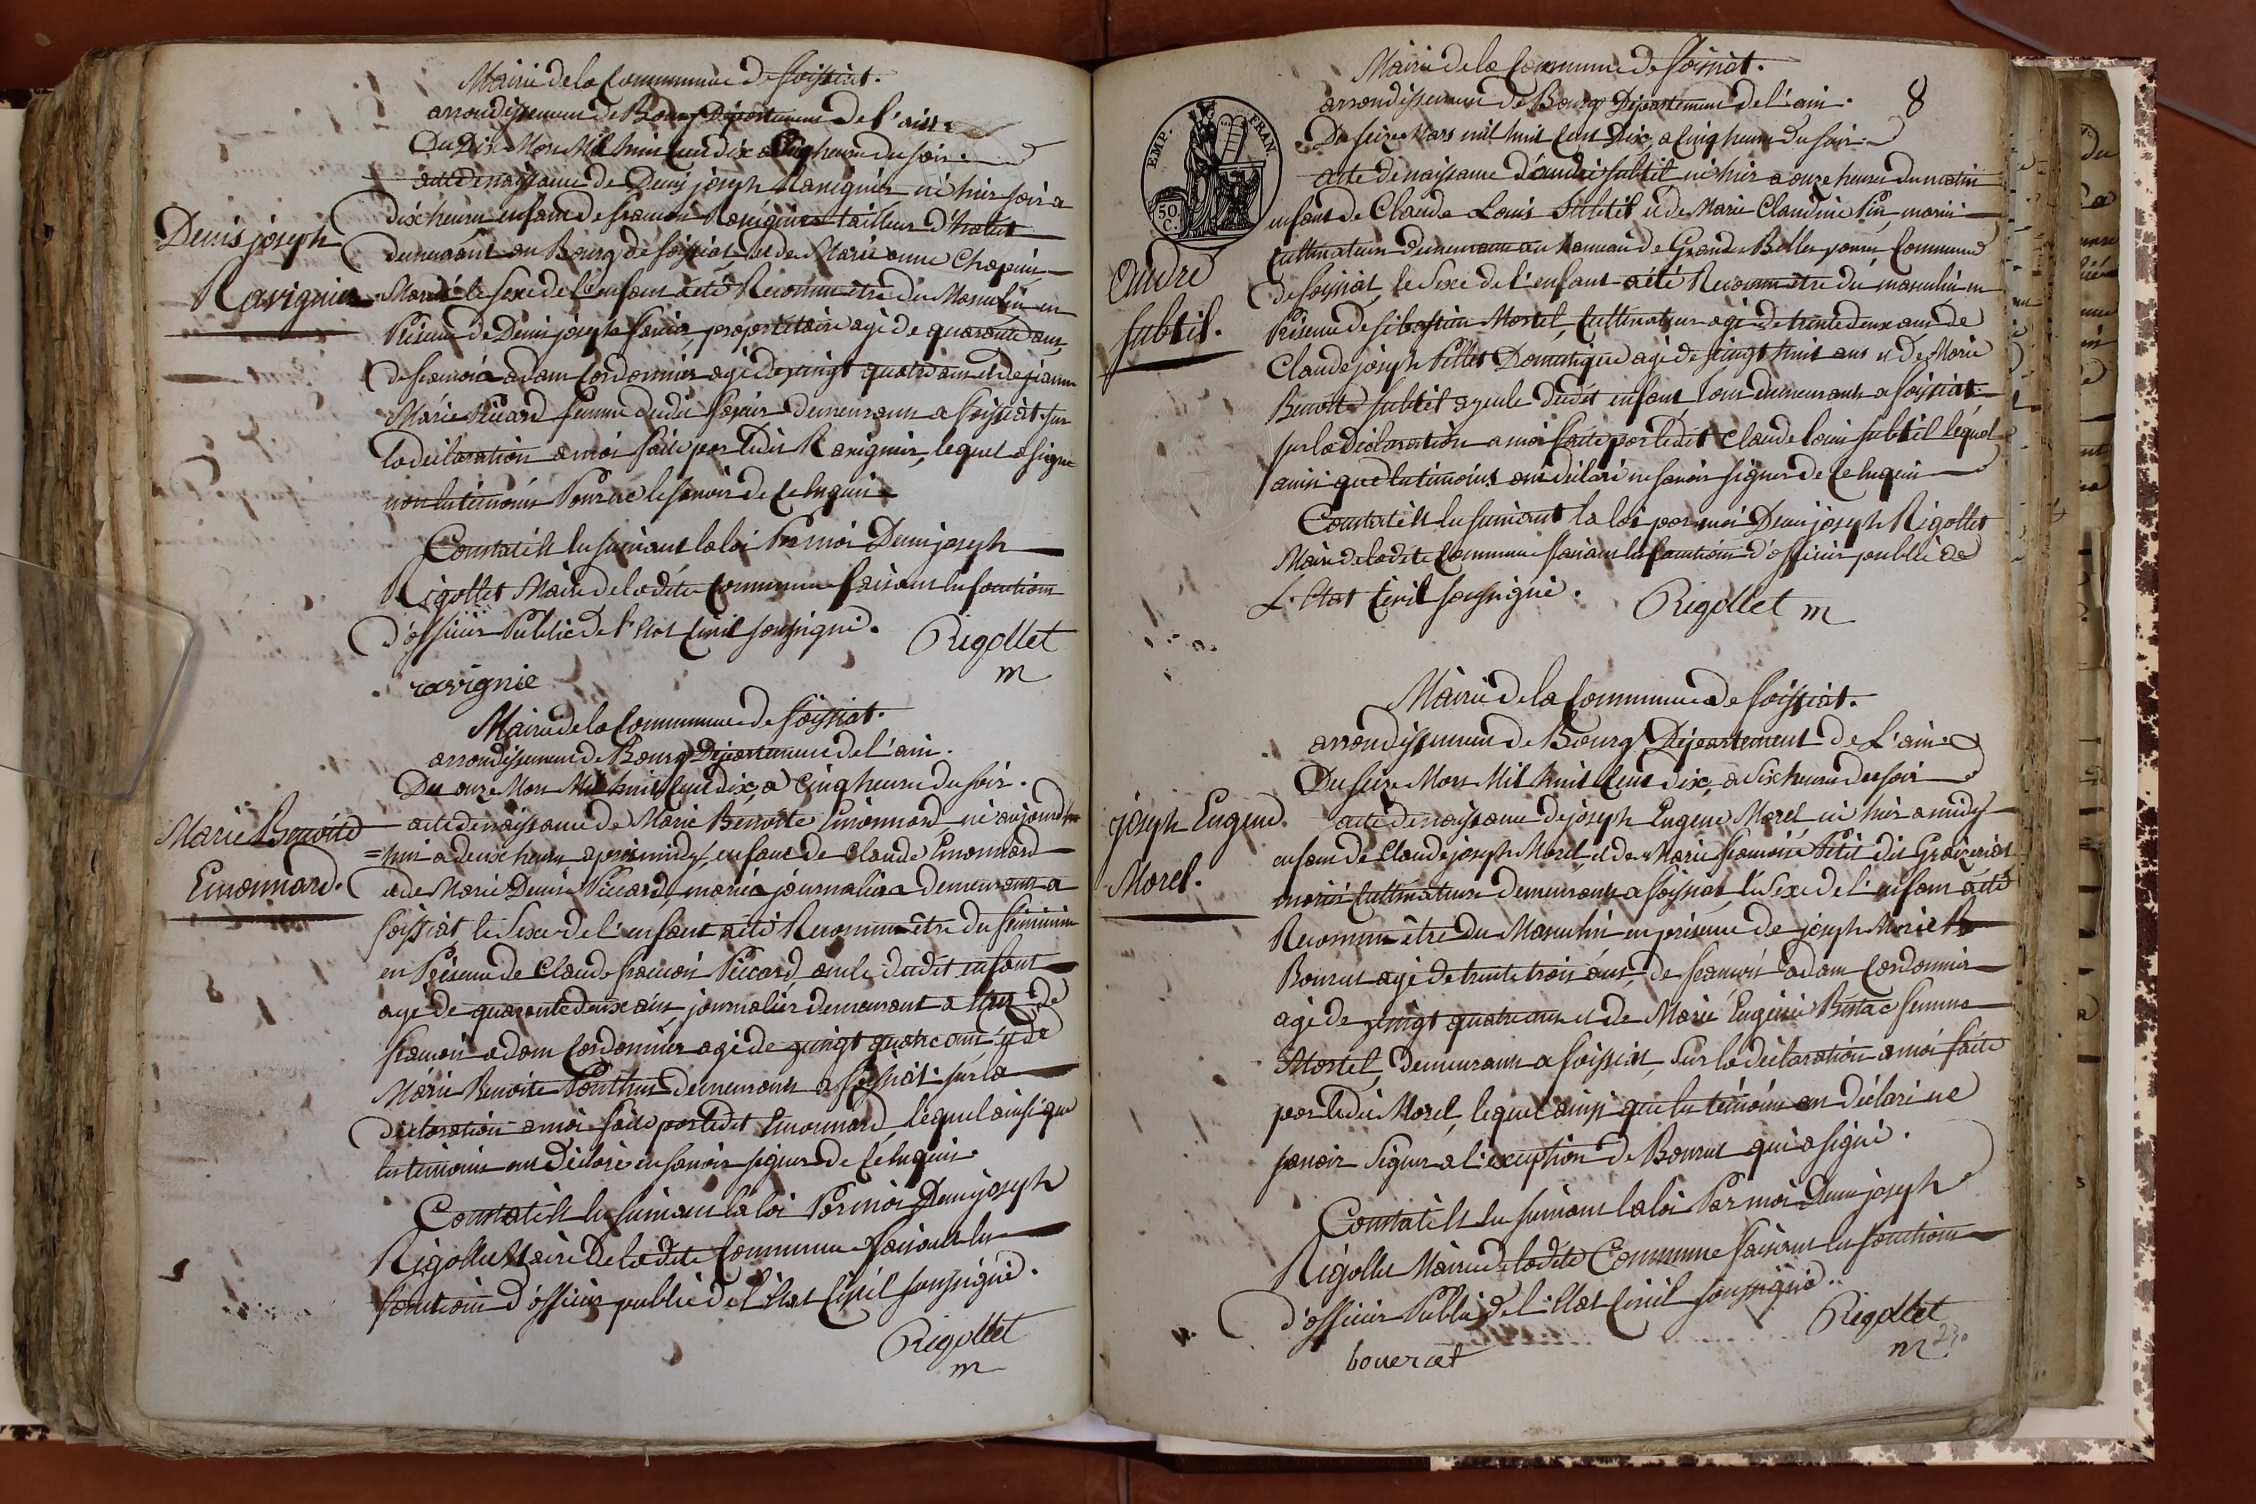 Mairie de la Commune de foissiat.
arrondissement de Bourg Département de l'ain
Du Dix Mars Mil huit Cent dix a Cinq heures du soir.
acte de naissance de Denis joseph Ravignier né hier soir a
dix heures enfant de francois Ravignier tailleur d'habits
Denis joseph
Ravignier
demeurant au Bourg de foissiat et de Marie anne Chapuis
Mariés le sexe de l'enfant a été Reconnu être du Masculin en
Présence de Denis joseph propriétaire agé de quarante ans
de francois adam Cordonnier agé de vingt quatre ans et de jeanne
Marie Picard femme dudit demeurans a foissiat sur
la déclaration a moi faite par ledit Ravignier, lequel a signé
non les témoins Pour ne le savoir de ce Enquis
Constaté les suivant la loi Par moi Denis joseph
Rigollet Maire de la dite Commune faisant les fonctions
d'officier Public de l'Etat Civil soussigné.
Rigollet
m
ravignie
Mairie de la Commune de foissiat.
arrondissement de Bourg Département de l'ain.
Du onze Mars Mil huit Cent dix a Cinq heures du soir.
Marie Benoite
Emonnard.
acte de naissance de Marie Benoite Emonnard né aujourd
=hui a deux heures après midy, enfant de Claude Emonnard
et de Marie Denise Piccard, mariés journaliers demeurans a
foissiat le sexe de l'enfant a été Reconnu être du féminin
en Présence de Claude francois Piccard, oncle dudit enfant
agé de quarante deux ans, journalier demeurant a de
francois adam Cordonnier agé de vingt quatre ans et de
Marie Benoite Ponthus demeurans a foissiat sur la
déclaration a moi faite par ledit Emonnard, lequel ainsi que
les témoins ont déclaré ne savoir signer de ce Enquis
Constaté les suivant la loi Par moi Denis joseph
Rigollet Maire de la dite Commune faisant les
fonctions d'officier public de l'Etat Civil soussigné.
Rigollet
m
Mairie de la Commune de foissiat.
arrondissement de Bourg Département de l'ain.
8
EMP. FRAN.
50 C.
Du seize Mars mil huit Cent Dix, a Cinq heures du soir
acte de naissance d'andré subtil né hier a onze heures du matin
enfant de Claude Louis Subtil et de Marie Claudine Pin mariés
Cultivateurs demeurans au hameau de Grande Commune
andré
subtil.
de foissiat, le sexe de l'enfant a été Reconnu être du masculin en
Présence de sébastien Mortel, Cultivateur agé de trente deux ans de
Claude joseph Pillet Domestique agé de vingt huit ans et de Marie
Benoite subtil ayeule dudit enfant tous demeurans a foissiat
sur la déclaration a moi faite par ledit Claude louis subtil lequel
ainsi que les témoins ont déclaré ne savoir signer de ce Enquis
Constaté les suivant la loi par moi Denis joseph Rigollet
Maire de la dite Commune faisant les fonctions d'officier public de
L'Etat Civil soussigné.
Rigollet m
Mairie de la Commune de foissiat.
arrondissement de Bourg Département de L'ain
Du seize Mars Mil huit Cent dix, a Six heures du soir
joseph Eugene.
Morel.
acte de naissance de joseph Eugene Morel né hier a midy
enfant de Claude joseph Morel et de Marie francoise Petit dit
mariés Cultivateurs demeurans a foissiat, le sexe de l'enfant a été
Reconnu être du Masculin en présence de joseph Marie
Bourcet agé de trente trois ans, de francois adam Cordonnier
agé de vingt quatre ans et de Marie Eugenie femme
Mortel, demeurans a foissiat, sur la déclaration a moi faite
par ledit Morel, lequel ainsi que les témoins on déclaré ne
savoir signer a l'exception de Bourcet qui a signé.
Constaté les suivant la loi Par moi Denis joseph
Rigollet Maire de la dite Commune faisant les fonctions
d'officier Public de l'Etat Civil soussigné.
Rigollet
m
bouercet